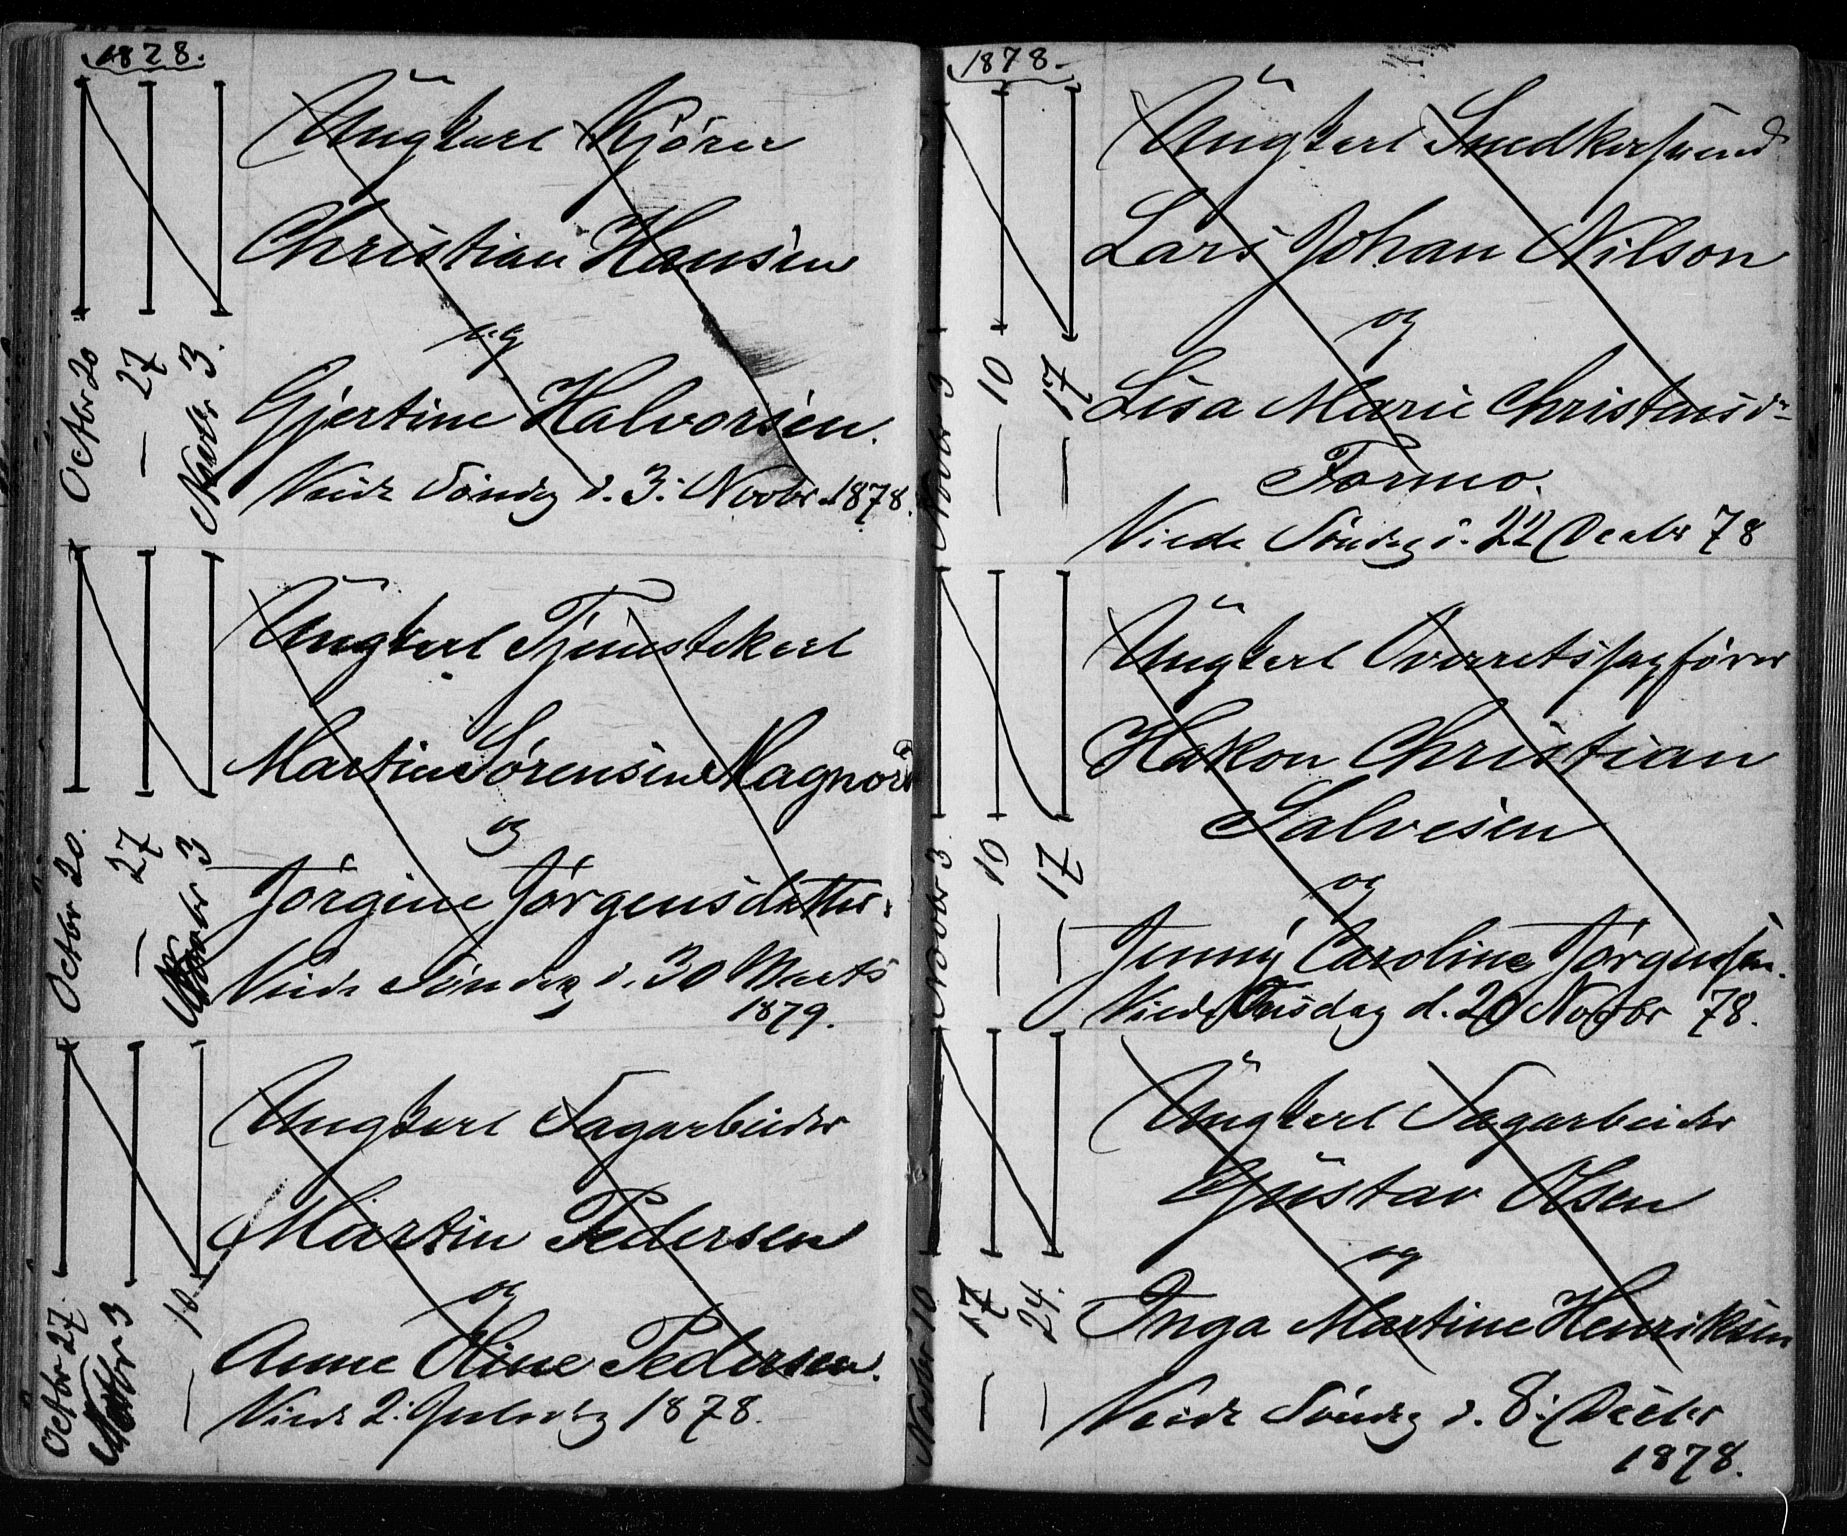 1878.
Ungkarl Kjører
Christian Hansen
og
Gjertine Halvorsen.
Viede Søndag d. 3: Novbr. 1878.
Octbr 20
— 27
Novbr 3.
Ungkarl Tjenestekarl
Martin Sørensen Magnor
og
Jørgine Jørgensdatter.
Viede Søndag d. 30 Marts
1879.
Octbr 20.
— 27
Novbr 3
Ungkarl Sagarbeider
Martin Pedersen
og
Anne Oline Pedersen.
Viede 2: Juledag 1878.
Octbr 27.
Novbr 3
— 10
1878.
Ungkarl Snedkersvend
Lars Johan Nilson
og
Lisa Marie Christensdr
Formo.
Viede Søndag d. 22 Decbr 78
Novbr 3
— 10
— 17
Ungkarl Overretssagfører
Hakon Christian
Salvesen
og
Jenny Caroline Jørgensen.
Viede Onsdag d. 20 Novbr 78.
Novbr 3.
— 10
— 17
Ungkarl Sagarbeider
Gustav Olsen
og
Inga Martine Henriksen
Viede Søndag d. 8: Decbr
1878.
Novbr 10
— 17
— 24.